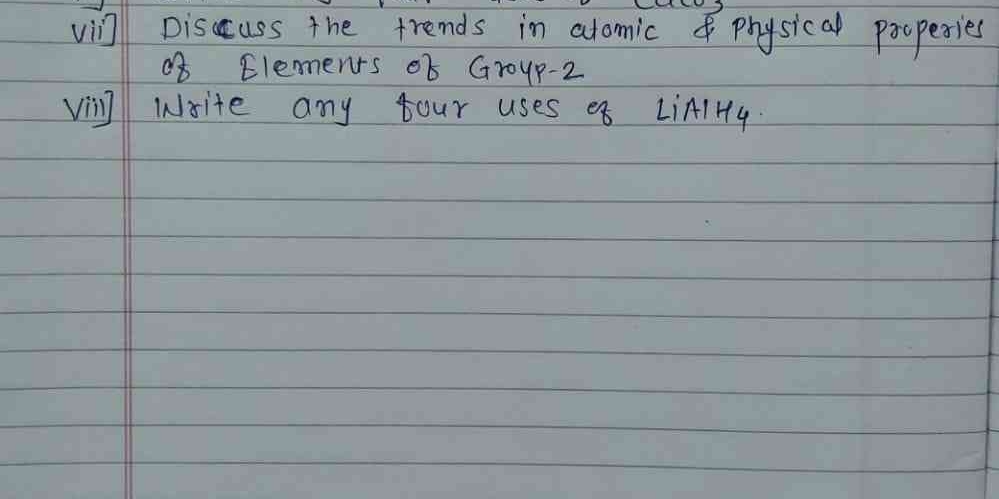 vii] Discuss the trends in atomic & physical properies
of Elements of Group-2
viii] Write any four uses of LiAlH4.